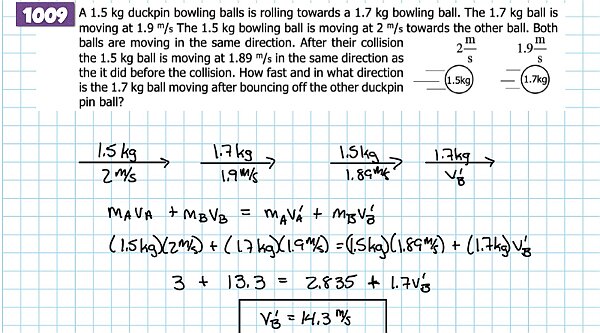 1009 A 1.5 kg duckpin bowling balls is rolling towards a 1.7 kg bowling ball. The 1.7 kg ball is
moving at 1.9 m/s The 1.5 kg bowling ball is moving at 2 m/s towards the other ball. Both
balls are moving in the same direction. After their collision
the 1.5 kg ball is moving at 1.89 m/s in the same direction as
the it did before the collision. How fast and in what direction
is the 1.7 kg ball moving after bouncing off the other duckpin
pin ball?
2 m/s 1.9 m/s
1.5kg 1.7kg
1.5 kg 1.7 kg 1.5 kg 1.7 kg
2 m/s 1.9 m/s 1.89 m/s VB'
mAVA + mBVB = mAVA' + mBVB'
(1.5kg)(2m/s) + (1.7kg)(1.9m/s) = (1.5kg)(1.89m/s) + (1.7kg)VB'
3 + 13.3 = 2.835 + 1.7VB'
VB' = 14.3 m/s